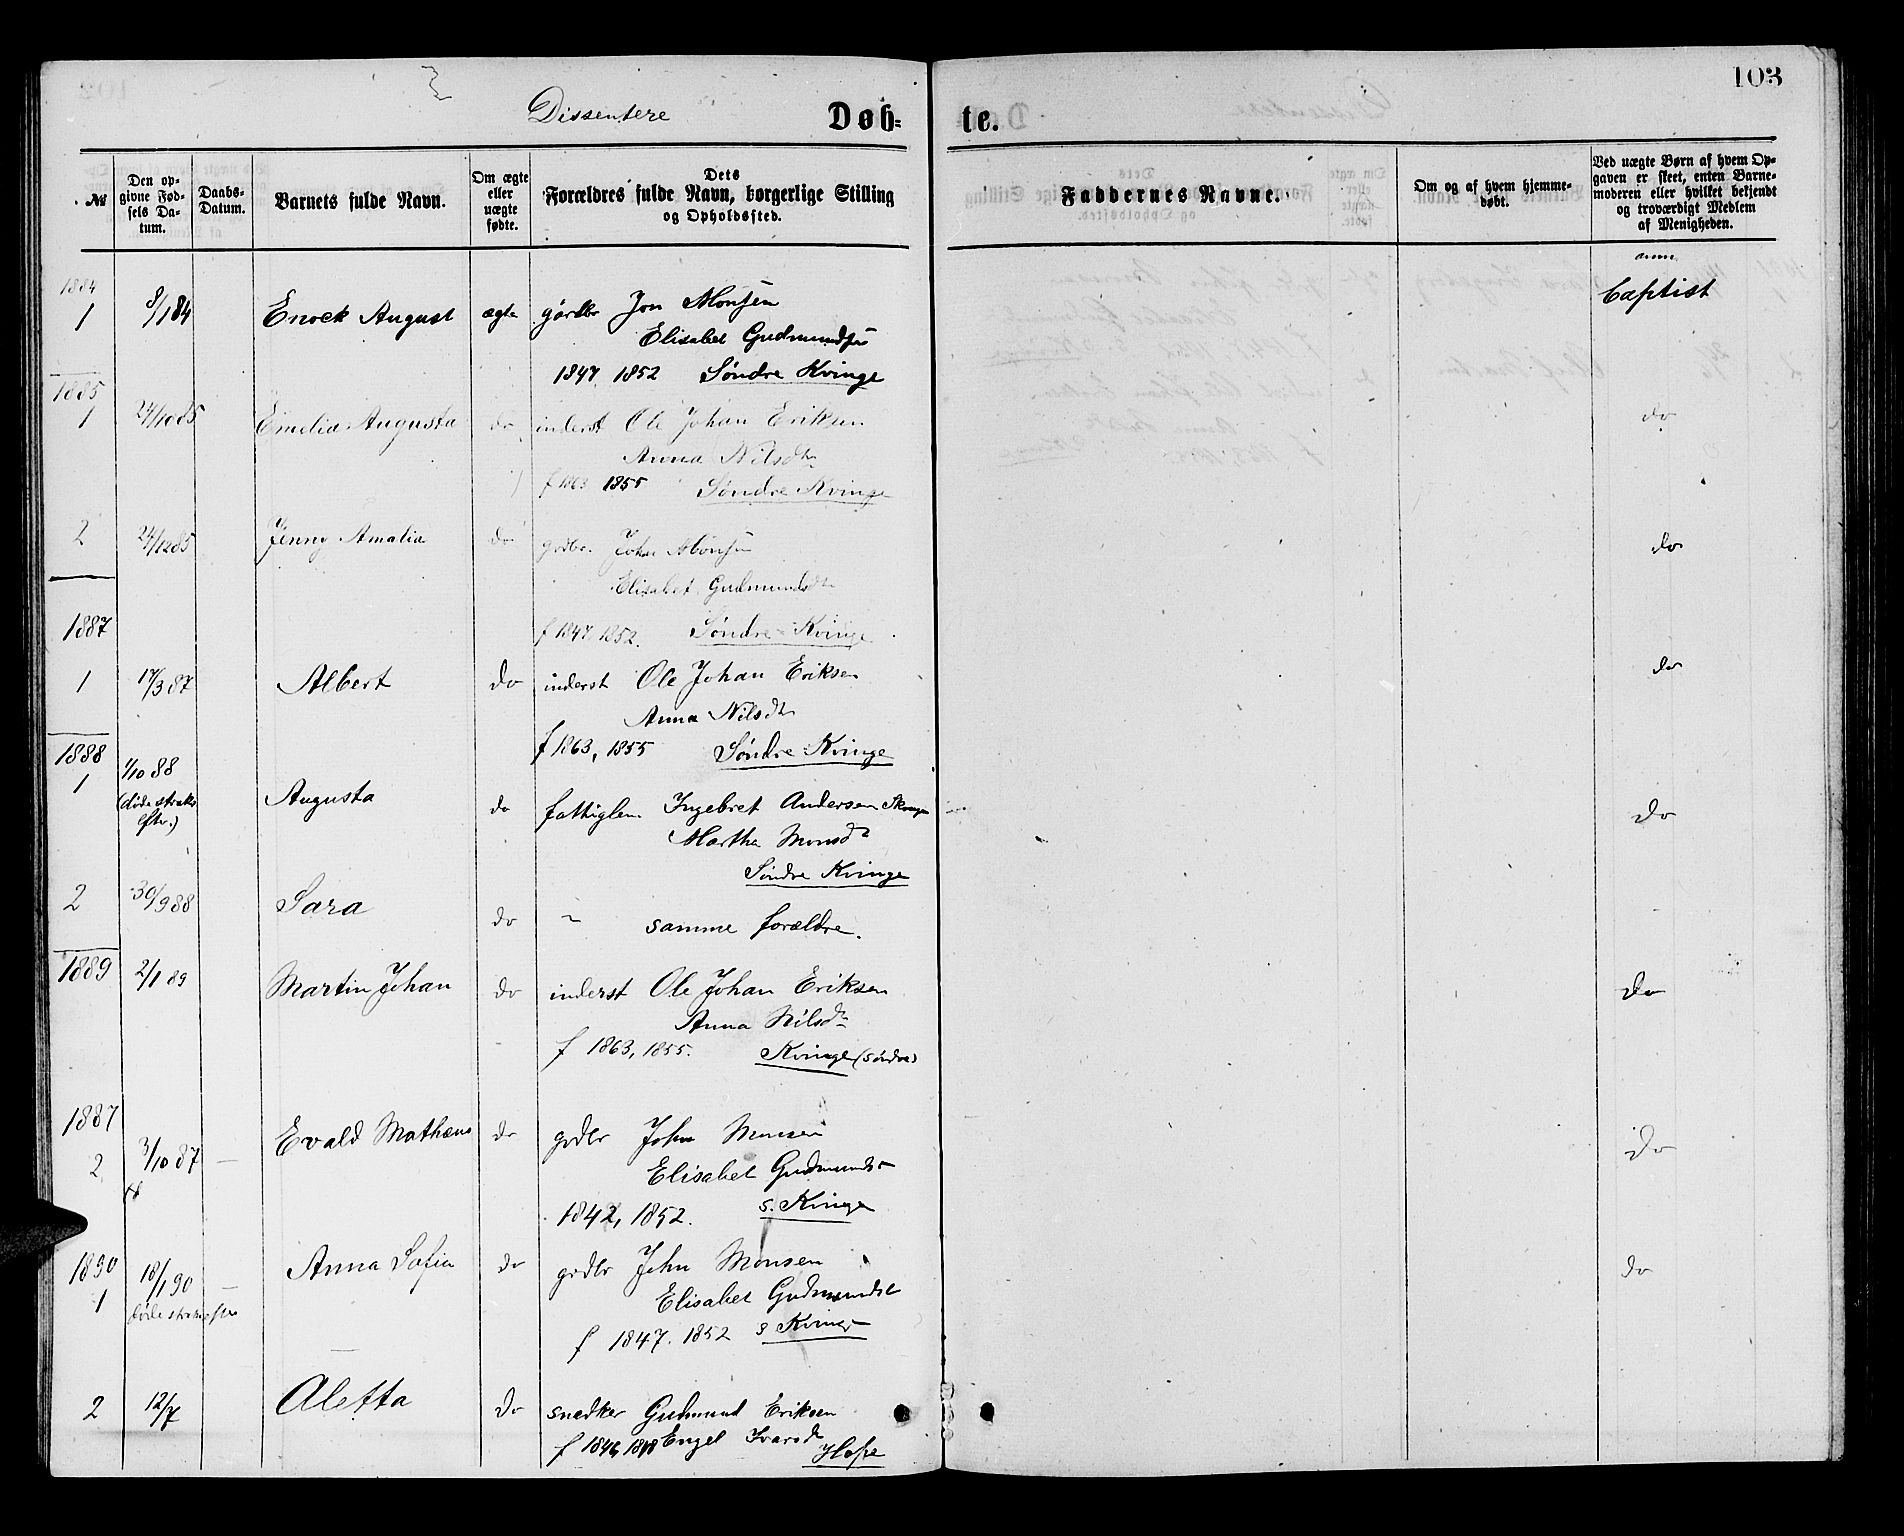 103
Dissentere Døb= te.
№
Den op-
givne Fød-
sels Da-
tum.
Daabs-
Datum.
Barnets fulde Navn.
Om ægte
eller
uægte
fødte.
Dets
Forældres fulde Navn, borgerlige Stilling
og Opholdssted.
Faddernes Navne.
Om og af hvem hjemme-
døbt.
Ved uægte Børn af hvem Op-
gaven er skeet, enten Barne-
moderen eller hvilket bekjendt
og troværdigt Medlem
af Menigheden.
1884
anm.
1 8/1 84 Enock August ægte gårdbr Jon Monsen Baptist
Elisabet Gudmunds
1847, 1852 Søndre Kvinge
1885
1 24/10 85 Emelia Augusta do inderst Ole Johan Eriksen do
Anna Nilsdtr
f 1863 1855 Søndre Kvinge
2 24/12 85 Jenny Amalia do grdbr. John Monsen do
Elisabet Gudmundsdtr
f 1847, 1852. Søndre Kvinge
1887
1 17/3 87 Albert do inderst Ole Johan Eriksen do
Anna Nilsdtr
f 1863, 1855 Søndre Kvinge
1888
1 1/10 88 Augusta do fattiglem Ingebret Andersen do
(døde straks
efter.)
Martha Monsdtr
Søndre Kvinge
2 30/9 88 Sara do samme forældre.
1889 2/1 89 Martin Johan do inderst Ole Johan Eriksen do
Anna Nilsdtr
f 1863, 1855. Kvinge (søndre)
1887
2 3/10 87 — Evald Mathæus do grdbr John Monsen do
Elisabet Gudmunds
1842, 1852. s. Kvinge
1890
1 18/1 90 — Anna Sofia do grdbr John Monsen do
døde strax efter
Elisabet Gudmundsd
f 1847. 1852 s Kvinge
2 12/7 Aletta do snedker Gudmund Eriksen
f 1846, Engel Ivarsd
Hope